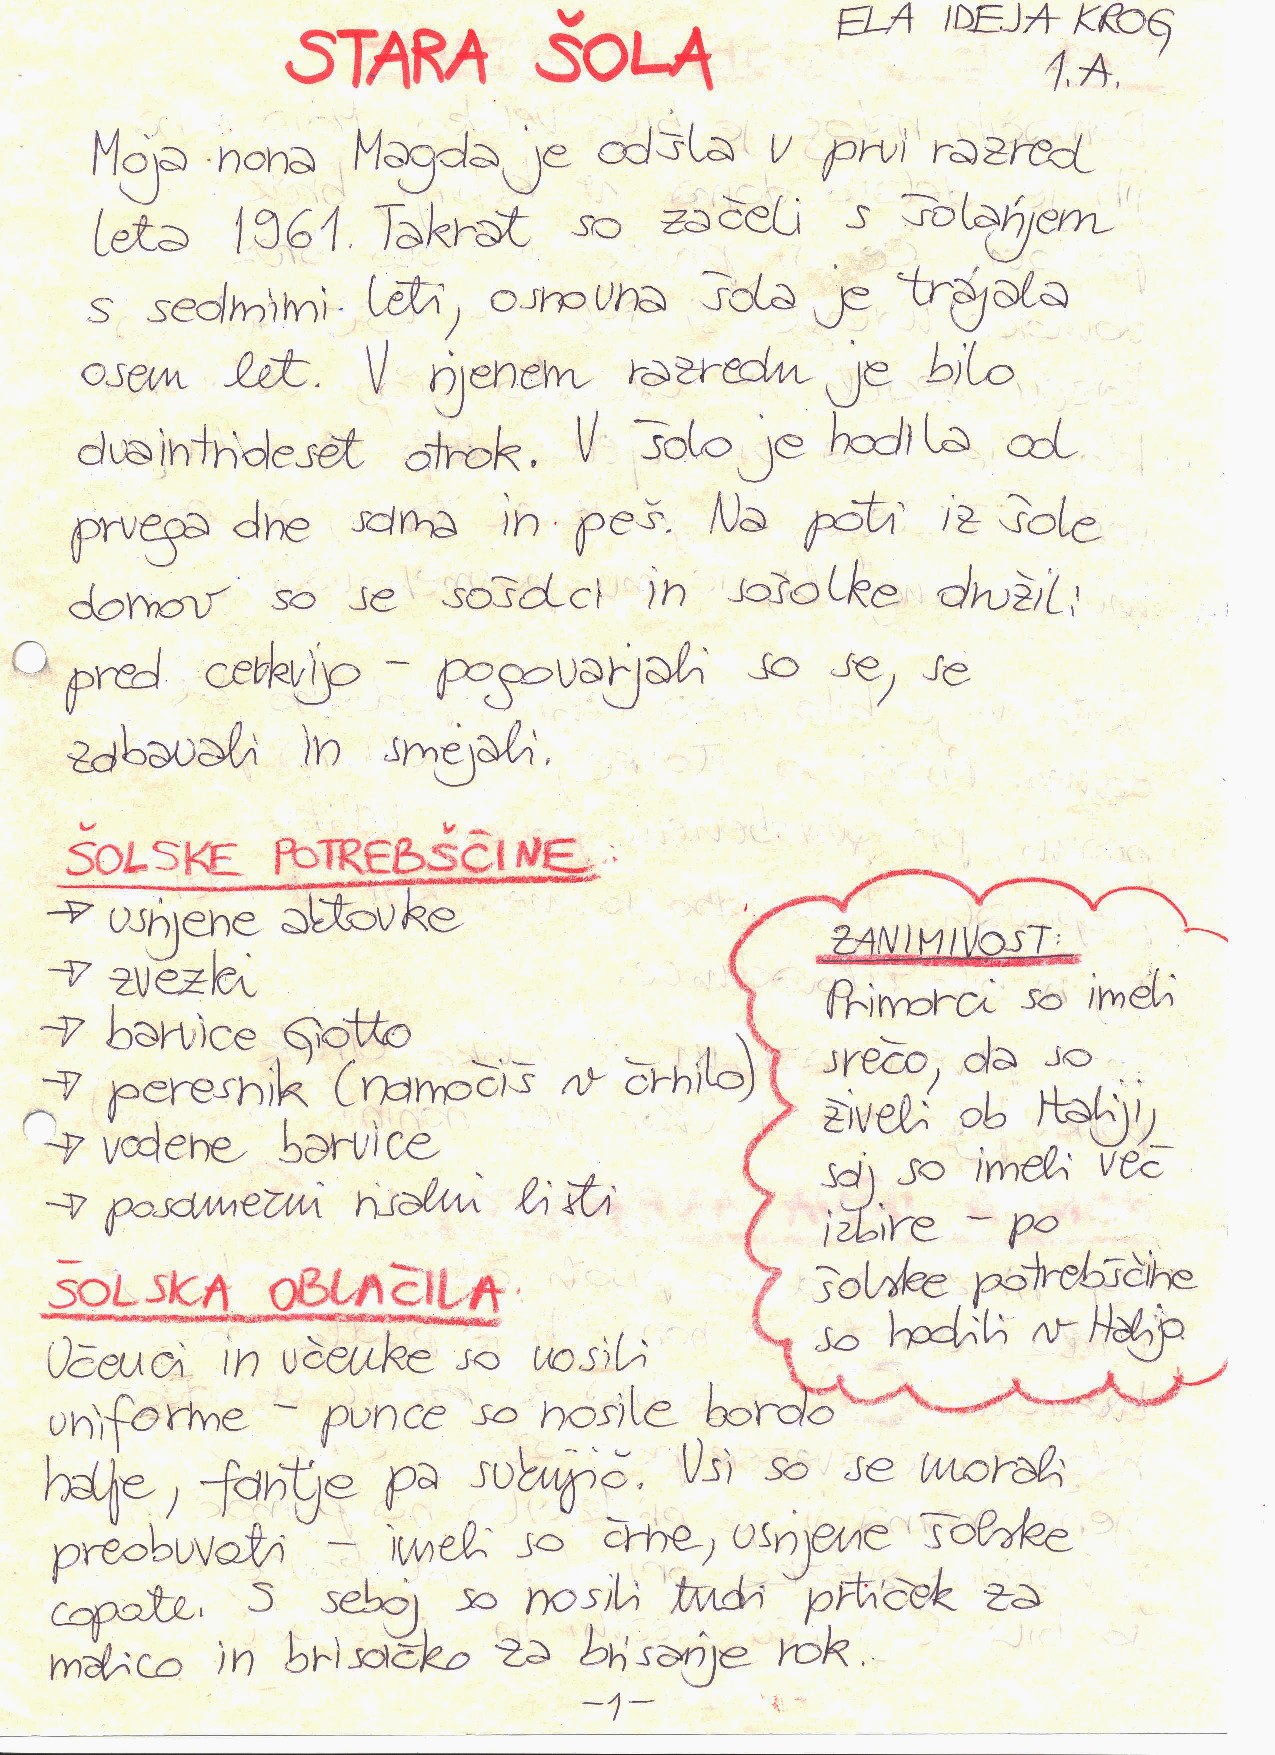 STARA ŠOLA
ELA IDEJA KROG
1.A.
Moja nona Magda je odšla v prvi razred
leta 1961. Takrat so začeli s šolanjem
s sedmimi leti, osnovna šola je trajala
osem let. V njenem razredu je bilo
dvaintrideset otrok. V šolo je hodila od
prvega dne sama in peš. Na poti iz šole
domov so se sošolci in sošolke družili
pred cerkvijo - pogovarjali so se, se
zabavali in smejali.
ŠOLSKE POTREBŠČINE:
→ usnjene aktovke
→ zvezki
→ barvice Giotto
→ peresnik (namočiš v črnilo)
→ vodene barvice
→ posamezni risalni listi
ZANIMIVOST:
Primorci so imeli
srečo, da so
živeli ob Italiji,
saj so imeli več
izbire - po
šolske potrebščine
so hodili v Italijo.
ŠOLSKA OBLAČILA:
Učenci in učenke so nosili
uniforme - punce so nosile bordo
halje, fantje pa suknjič. Vsi so se morali
preobuvati - imeli so črne, usnjene šolske
copate. S seboj so nosili tudi prtiček za
malico in brisačko za brisanje rok.
-1-